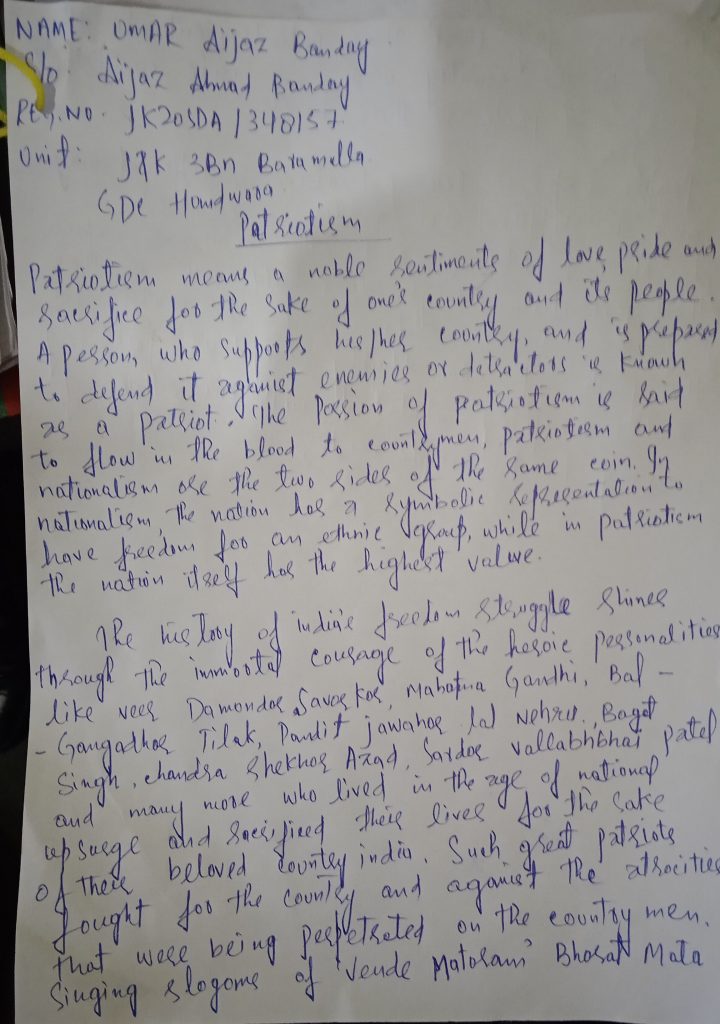 NAME: UMAR Aijaz Banday
S/o Aijaz Ahmad Banday
REG.NO. JK20SDA/348157
Unit: J&K 3Bn Baramulla
GDC Handwara
Patriotism
Patriotism means a noble sentiments of love, pride and
sacrifice for the sake of one's country and its people.
A person, who supports his/her country, and is prepared
to defend it against enemies or detractors is known
as a patriot. The Passion of patriotism is said
to flow in the blood to countrymen, patriotism and
nationalism are the two sides of the same coin. In
nationalism, the nation has a symbolic representation to
have freedom for an ethnic group, while in patriotism
the nation itself has the highest value.
The history of india's freedom struggle shines
through the immortal courage of the heroic personalities
like veer Damondar Savarkar, Mahatma Gandhi, Bal -
- Gangadhar Tilak, Pandit jawahar lal Nehru, Bagat
Singh, chandra shekhar Azad, Sardar vallabhbhai patel
and many more who lived in the age of national
upsurge and sacrificed their lives for the sake
of their beloved country india. Such great patriots
fought for the country and against the atrocities
that were being perpetrated on the country men.
Singing slogoms of 'Vende Mataram' Bharat Mata